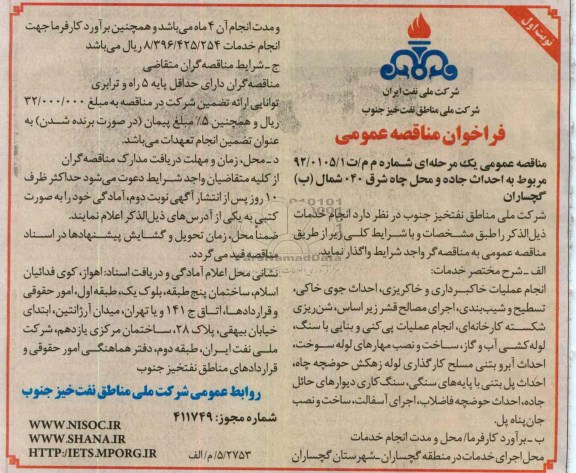 نوبت اول
شرکت ملی نفت ایران
شرکت ملی مناطق نفت‌خیز جنوب
فراخوان مناقصه عمومی
مناقصه عمومی یک مرحله‌ای شماره م م/ت/۹۲/۰۱۰۵/۱
مربوط به احداث جاده و محل چاه شرق ۰۴۰ شمال (ب)
گچساران
شرکت ملی مناطق نفتخیز جنوب در نظر دارد انجام خدمات
ذیل‌الذکر را طبق مشخصات و با شرایط کلی زیر از طریق
مناقصه عمومی به مناقصه‌گر واجد شرایط واگذار نماید.
الف ـ شرح مختصر خدمات:
انجام عملیات خاکبرداری و خاکریزی، احداث جوی خاکی،
تسطیح و شیب‌بندی، اجرای مصالح قشر زیر اساس، شن‌ریزی
شکسته کارخانه‌ای، انجام عملیات پی‌کنی و بنایی با سنگ،
لوله‌کشی آب و گاز، ساخت و نصب مهارهای لوله سوخت،
احداث آبرو بتنی مسلح کارگذاری لوله زهکش حوضچه چاه،
احداث پل بتنی با پایه‌های سنگی، سنگ‌کاری دیوارهای حائل
جاده، احداث حوضچه فاضلاب، اجرای آسفالت، ساخت و نصب
جان‌پناه پل.
ب ـ برآورد کارفرما/ محل و مدت انجام خدمات
محل اجرای خدمات در منطقه گچساران ـ شهرستان گچساران
و مدت انجام آن ۴ ماه می‌باشد و همچنین برآورد کارفرما جهت
انجام خدمات ۸/۳۹۶/۴۲۵/۲۵۴ ریال می‌باشد
ج ـ شرایط مناقصه‌گران متقاضی
مناقصه‌گران دارای حداقل پایه ۵ راه و ترابری
توانایی ارائه تضمین شرکت در مناقصه به مبلغ ۳۲/۰۰۰/۰۰۰
ریال و همچنین ۵٪ مبلغ پیمان (در صورت برنده شدن) به
عنوان تضمین انجام تعهدات می‌باشد.
د ـ محل، زمان و مهلت دریافت مدارک مناقصه‌گران
از کلیه متقاضیان واجد شرایط دعوت می‌شود حداکثر ظرف
۱۰ روز پس از انتشار آگهی نوبت دوم، آمادگی خود را به صورت
کتبی به یکی از آدرس‌های ذیل‌الذکر اعلام نمایند.
ضمناً محل، زمان تحویل و گشایش پیشنهادها در اسناد
مناقصه قید می‌گردد.
نشانی محل اعلام آمادگی و دریافت اسناد: اهواز، کوی فدائیان
اسلام، ساختمان پنج طبقه، بلوک یک، طبقه اول، امور حقوقی
و قراردادها، اتاق ج ۱۴۱ و یا تهران، میدان آرژانتین، ابتدای
خیابان بیهقی، پلاک ۲۸، ساختمان مرکزی یازدهم، شرکت
ملی نفت ایران، طبقه دوم، دفتر هماهنگی امور حقوقی و
قراردادهای مناطق نفتخیز جنوب
روابط عمومی شرکت ملی مناطق نفت‌خیز جنوب
شماره مجوز: ۴۱۱۷۴۹
WWW.NISOC.IR
WWW.SHANA.IR
HTTP:/IETS.MPORG.IR
۵/۲۷۵۳/م/الف